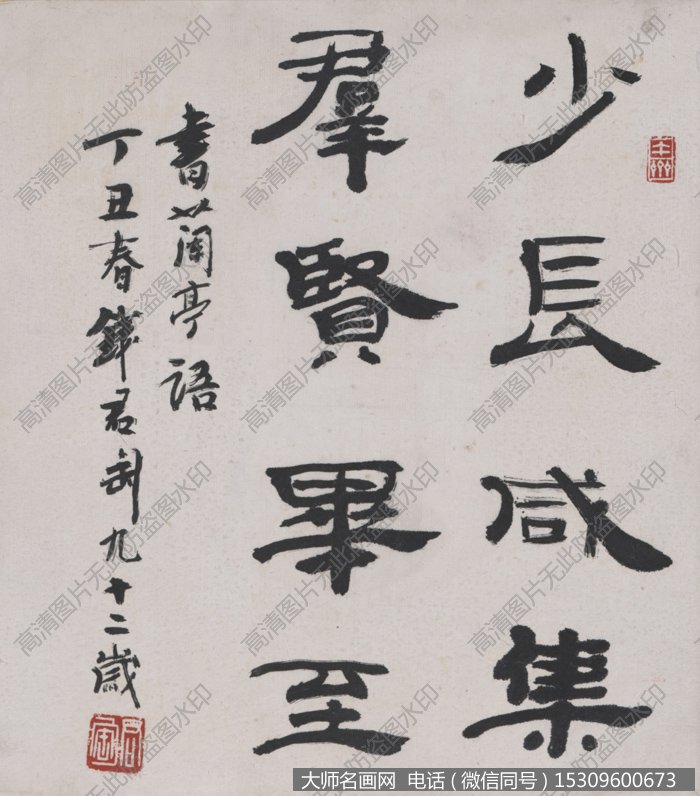 少長咸集
羣賢畢至
書蘭亭語
丁丑春錢君匋九十二歲
高清图片无此防盗图水印
大师名画网 电话（微信同号）15309600673